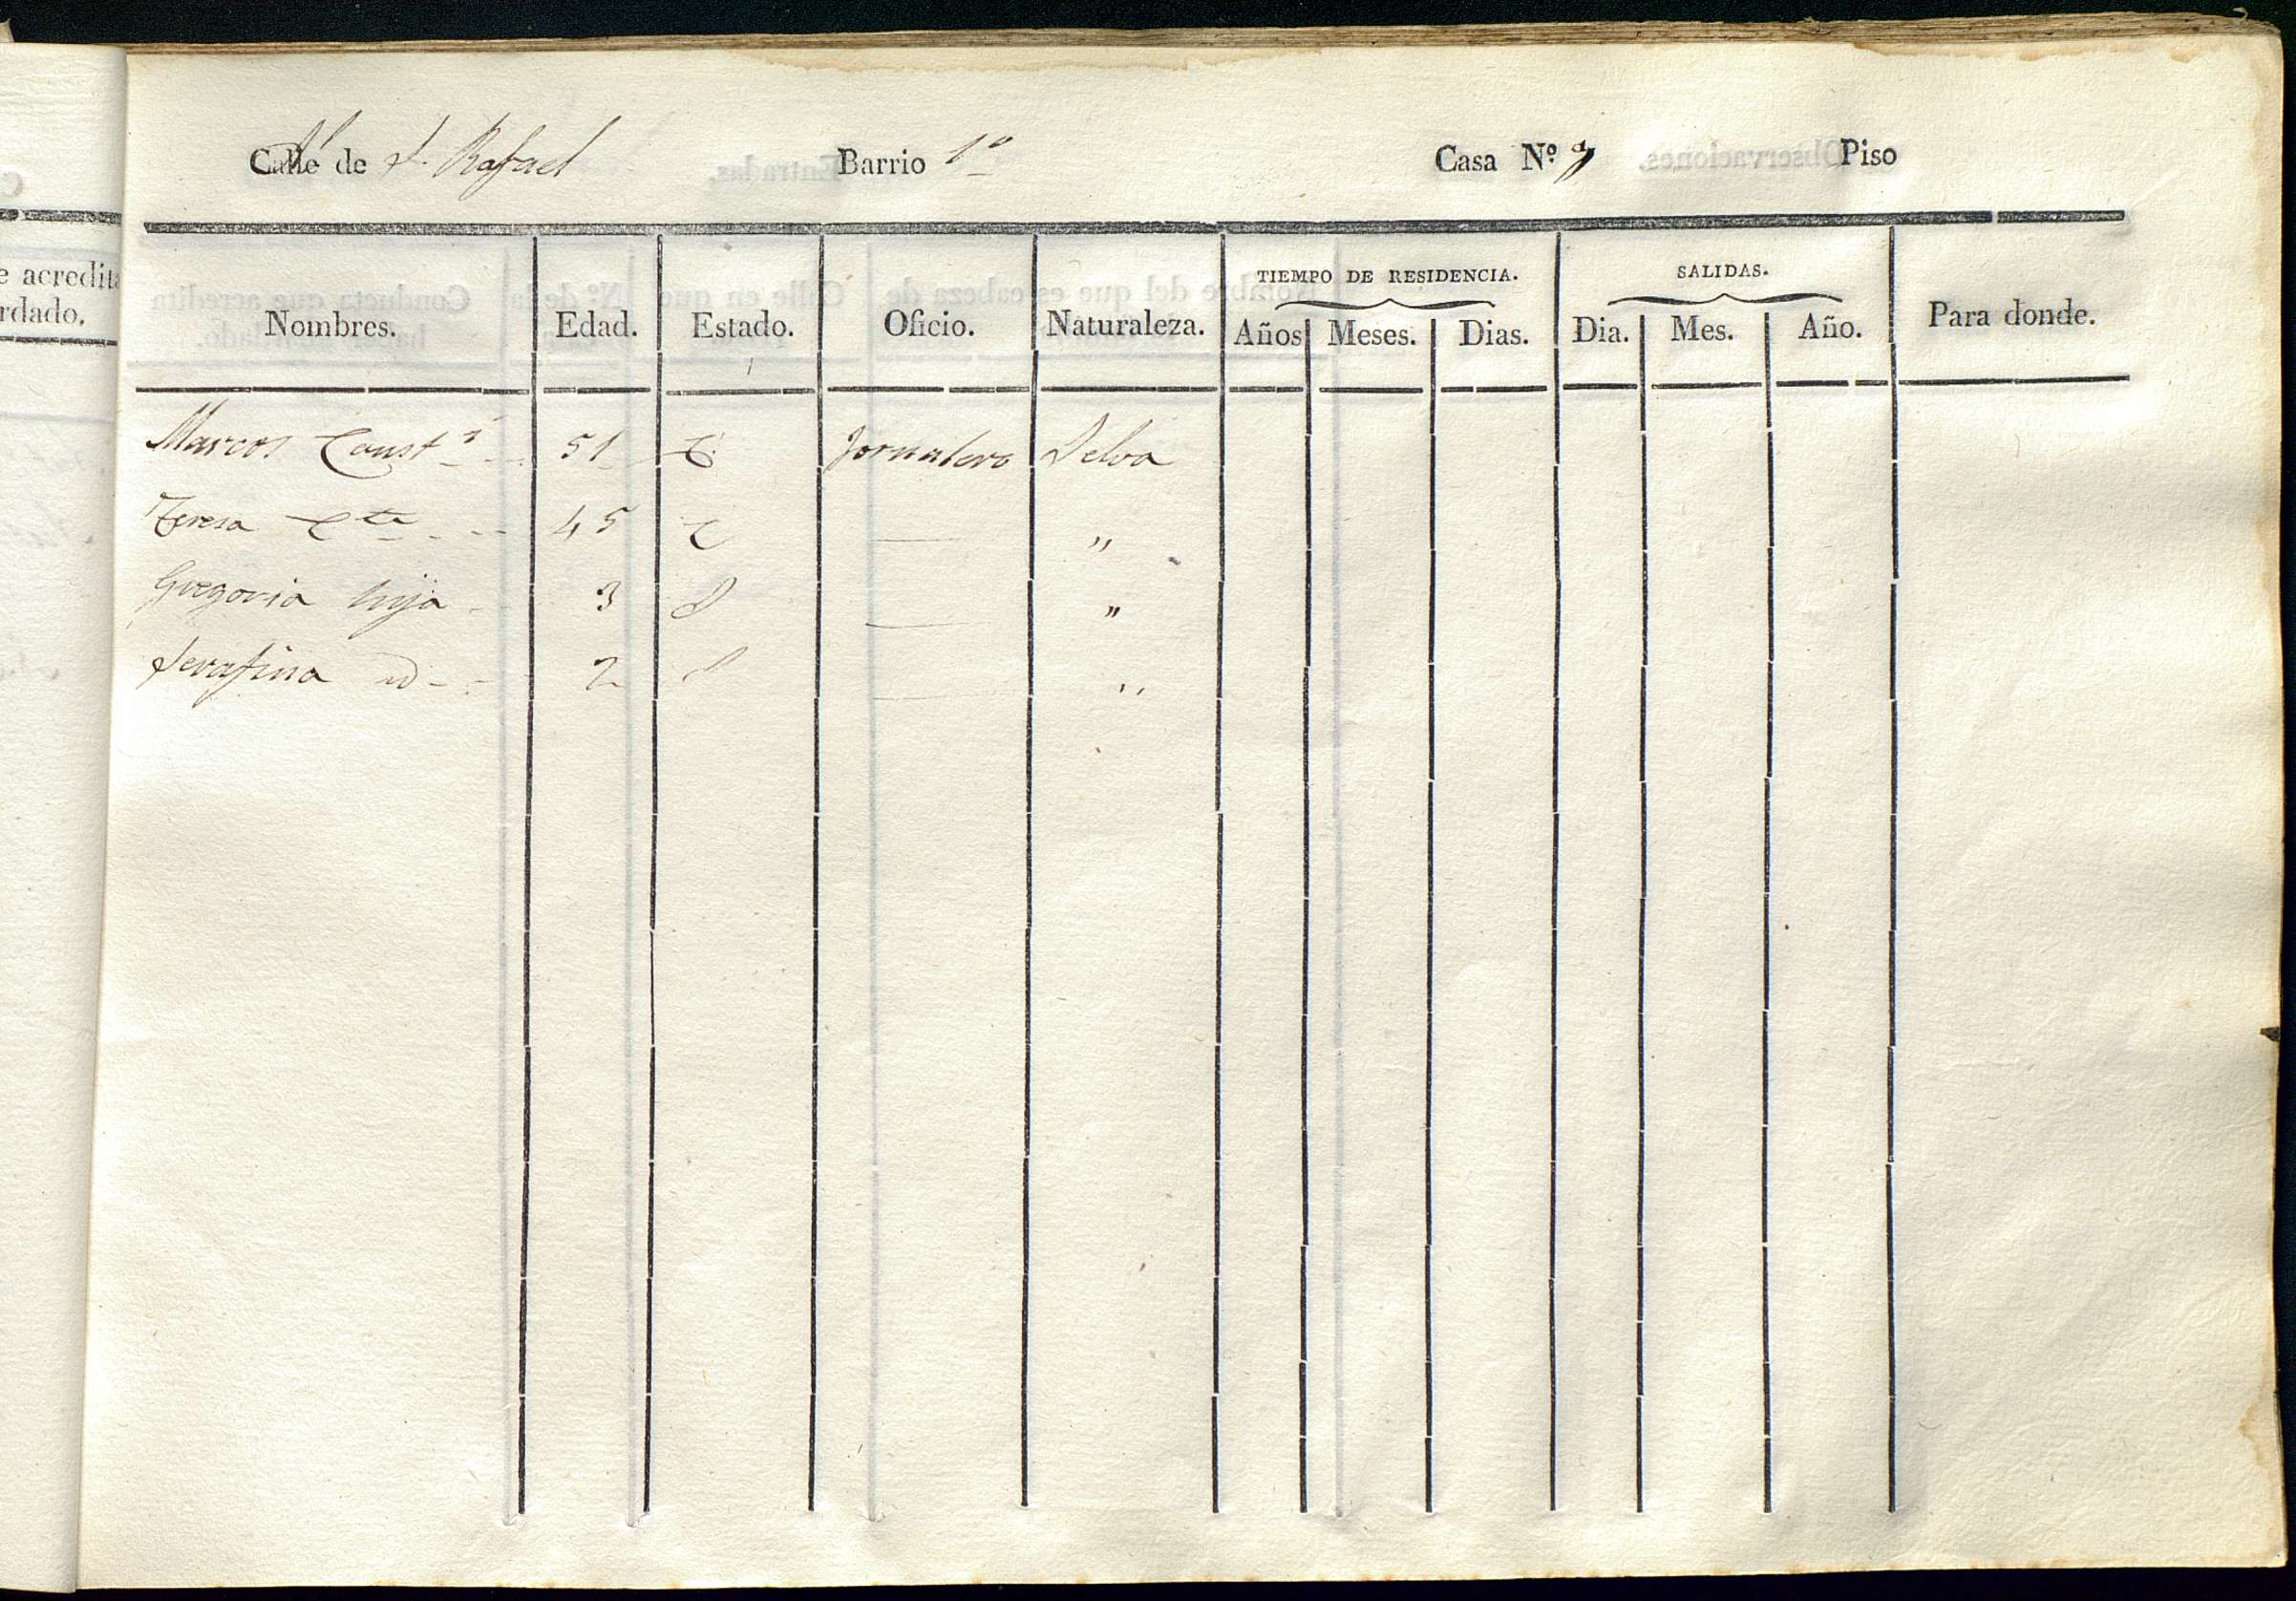 Calle de S. Rafael Barrio 1º Casa Nº Piso
e acredita
rdado.
TIEMPO DE RESIDENCIA. SALIDAS.
Nombres. Edad. Estado. Oficio. Naturaleza. Años Meses. Dias. Dia. Mes. Año. Para donde.
Marcos 51 C. Jornalero Selva
Teresa 45 C — "
Gregoria hija 3 S — "
Serafina id 2 S — "